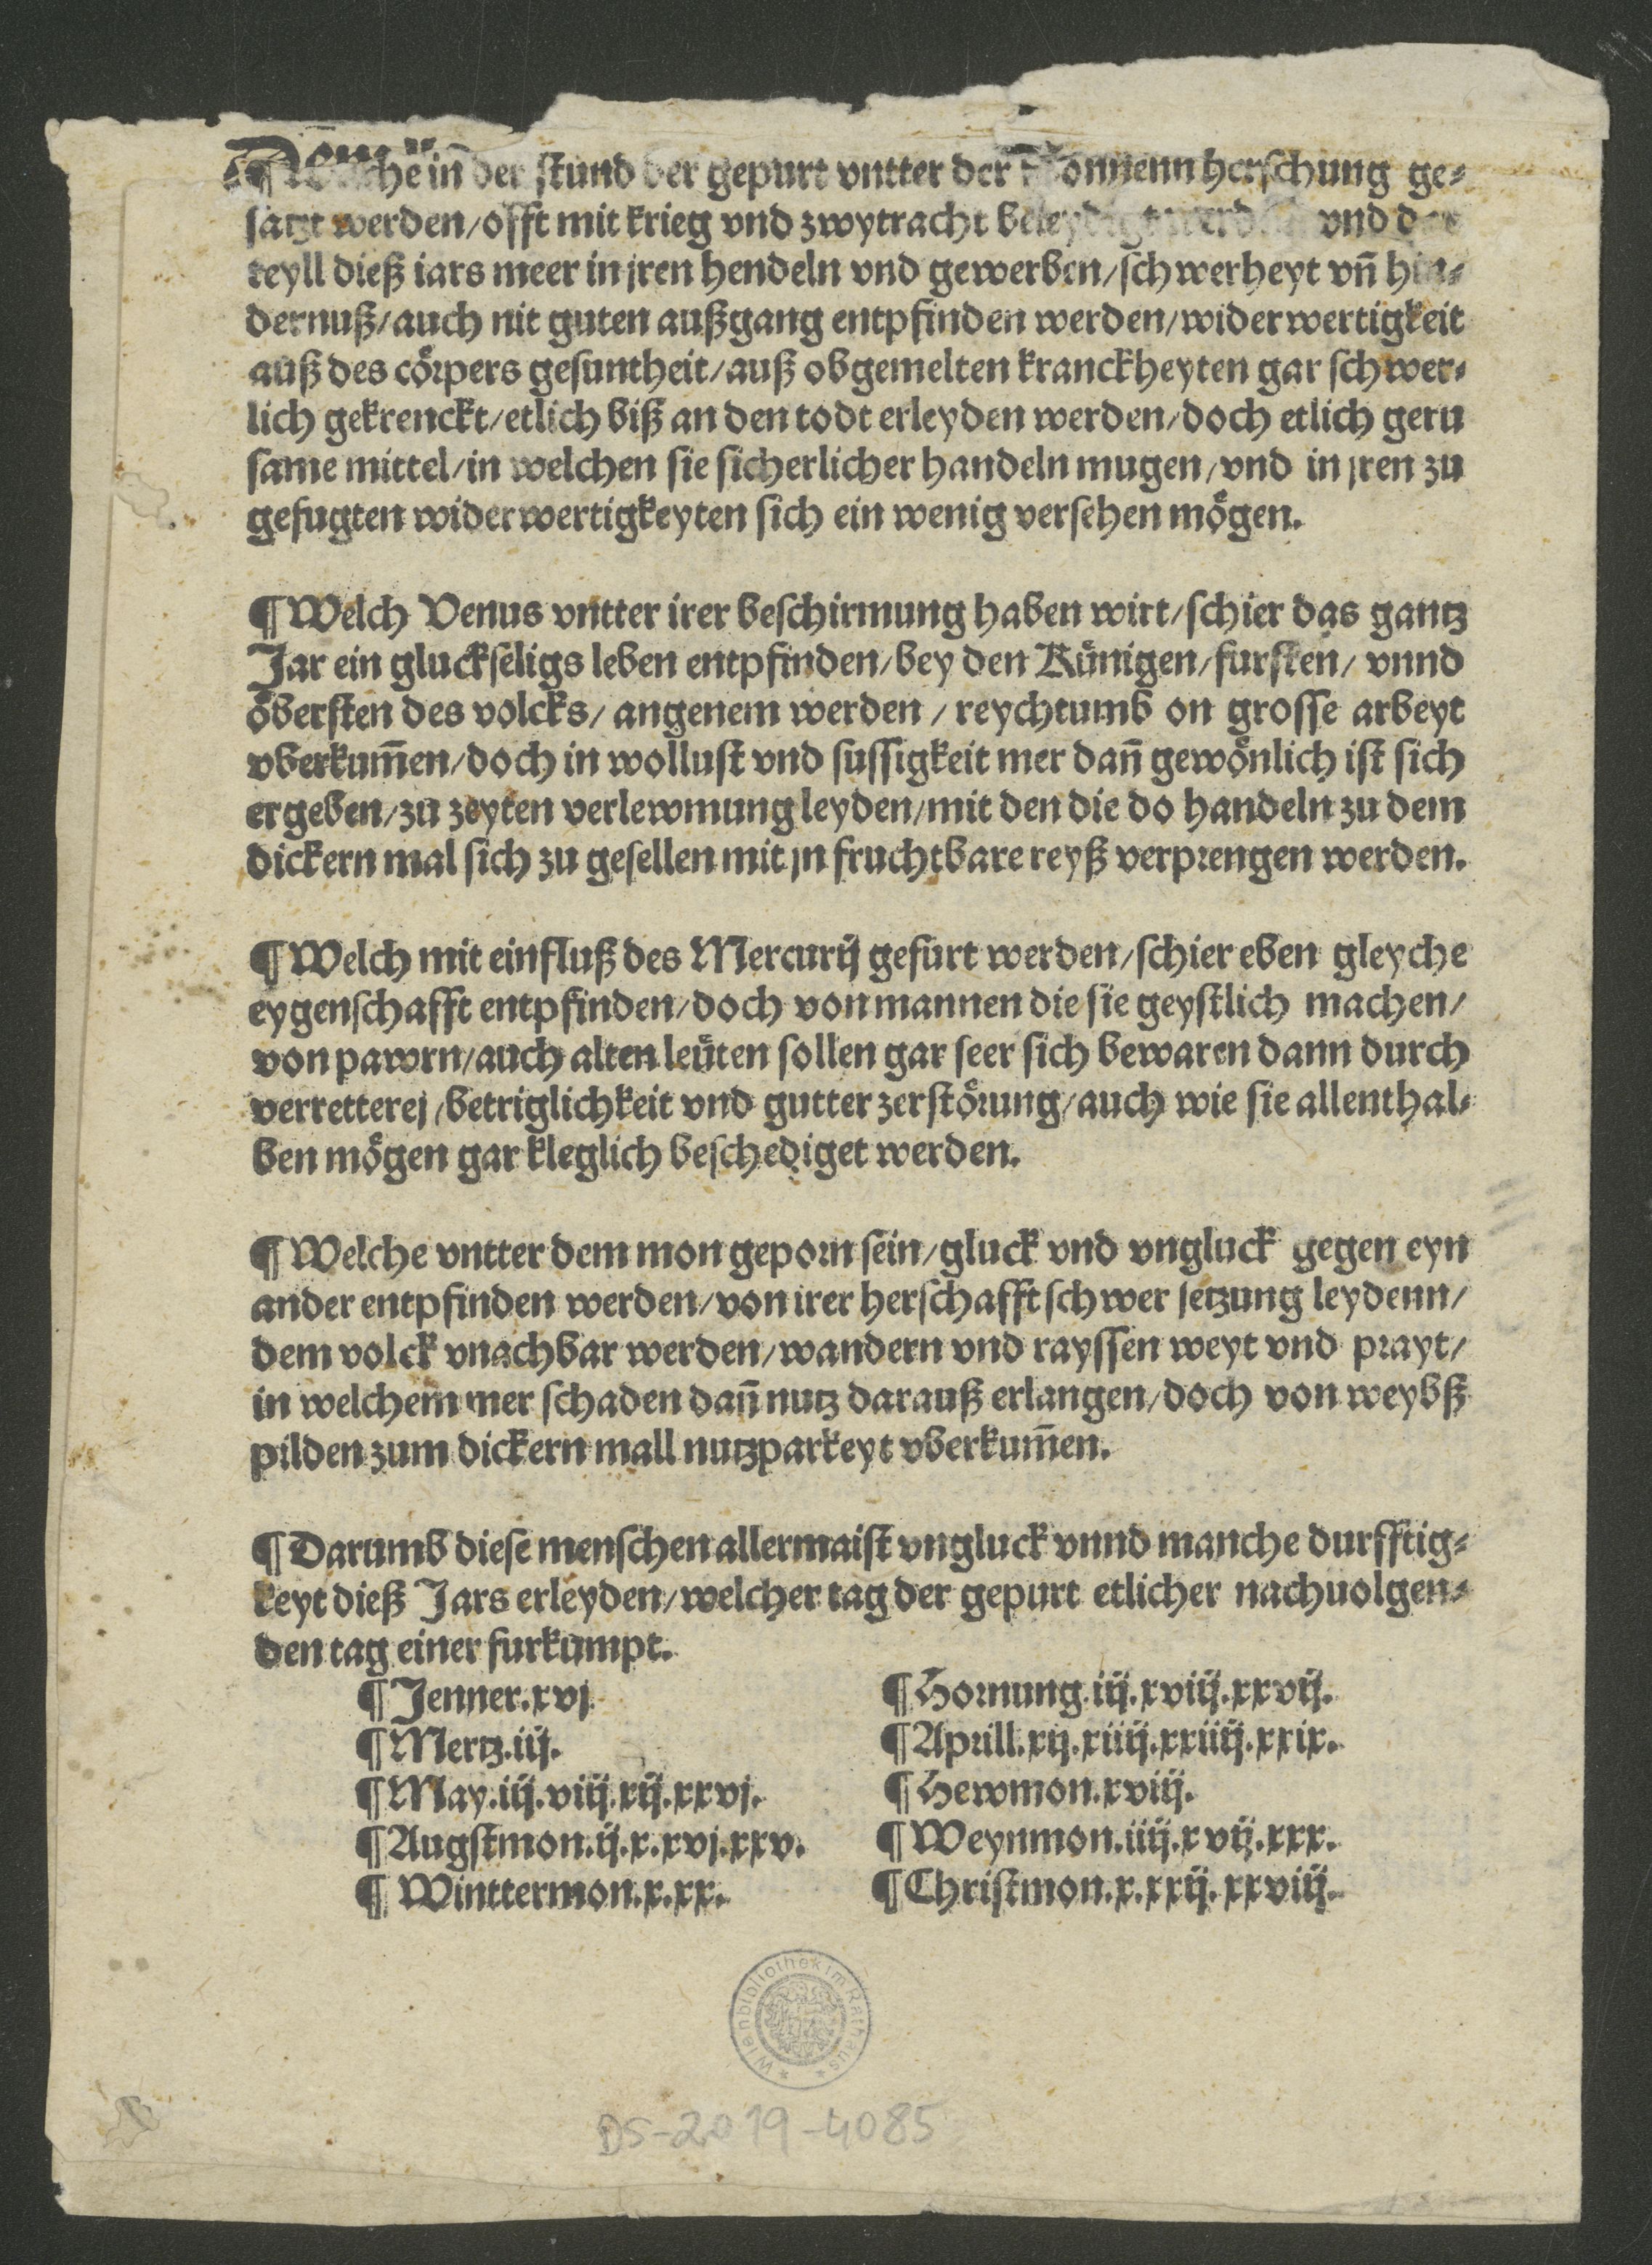 ¶ Welche in̄ der stund der gepurt vntter der Sonnenn herschung ge⸗
satzt werden/offt mit krieg vnd zwytracht beleydigt werden vnd der
teyll dieß iars meer in jren hendeln vnd gewerben/schwerheyt vn̄ hin⸗
dernuß/auch nit guten außgang entpfinden werden/widerwertigkeit
auß des cörpers gesuntheit/auß obgemelten kranckheyten gar schwer⸗
lich gekrenckt/etlich biß an den todt erleyden werden/doch etlich geru
same mittel/in welchen sie sicherlicher handeln mugen/vnd in jren zu
gefugten widerwertigkeyten sich ein wenig versehen mögen.
¶ Welch Venus vntter irer beschirmung haben wirt/schier das gantz
Jar ein gluckseligs leben entpfinden/bey den Künigen/fursten/ vnnd
öbersten des volcks/ angenem werden / reychtumb on grosse arbeyt
vberkum̄en/doch in wollust vnd sussigkeit mer dan̄ gewönlich ist sich
ergeben/zu zeyten verlewmung leyden/mit den die do handeln zu dem
dickern mal sich zu gesellen mit jn fruchtbare reyß verprengen werden.
¶ Welch mit einfluß des Mercurij gefurt werden/schier eben gleyche
eygenschafft entpfinden/doch von mannen die sie geystlich machen/
von pawrn/auch alten leüten sollen gar seer sich bewaren dann durch
verretterej/betriglichkeit vnd gutter zerstörung/auch wie sie allenthal⸗
ben mögen gar kleglich beschediget werden.
¶ Welche vntter dem mon geporn sein/gluck vnd vngluck gegen eyn
ander entpfinden werden/von irer herschafft schwer setzung leydenn/
dem volck vnachbar werden/wandern vnd rayssen weyt vnd prayt/
in welchem mer schaden dan̄ nutz darauß erlangen/doch von weybß
pilden zum dickern mall nutzparkeyt vberkum̄en.
¶ Darumb diese menschen allermaist vngluck vnnd manche durfftig⸗
keyt dieß Jars erleyden/welcher tag der gepurt etlicher nachuolgen⸗
den tag einer furkumpt.
¶ Jenner.xvj.
¶ Hornung.iij.xviij.xxvij.
¶ Mertz.iij.
¶ Aprill.xij.xiiij.xxiiij.xxix.
¶ May.iij.viij.xij.xxvj.
¶ Hewmon.xviij.
¶ Augstmon.ij.x.xvj.xxv.
¶ Weynmon.iiij.xvij.xxx.
¶ Winttermon.x.xx.
¶ Christmon.x.xxij.xxviij.
Wienbibliothek im Rathaus
DS-2019-4085